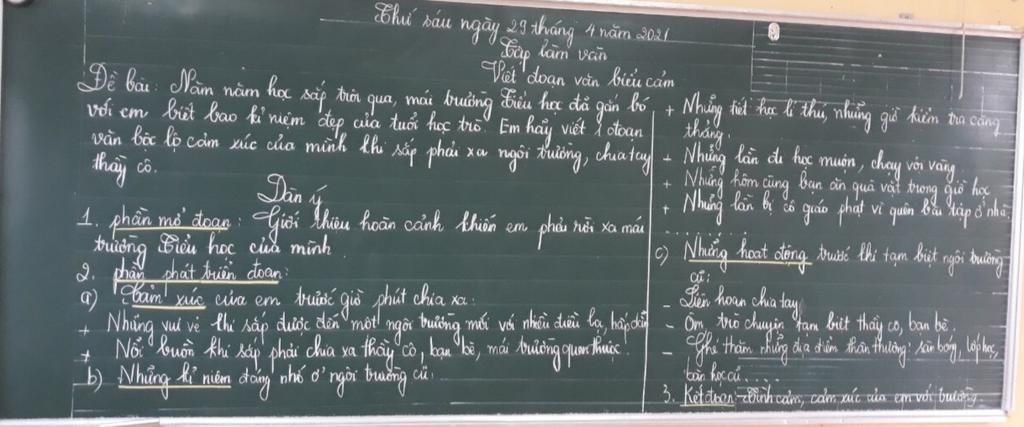 Thứ sáu ngày 29 tháng 4 năm 2021
Tập làm văn
Viết đoạn văn biểu cảm
Đề bài: Năm năm học sắp trôi qua, mái trường Tiểu học đã gắn bó
với em biết bao kỉ niệm đẹp của tuổi học trò. Em hãy viết 1 đoạn
văn bộc lộ cảm xúc của mình khi sắp phải xa ngôi trường, chia tay
thầy cô.
Dàn ý
1. phần mở đoạn: Giới thiệu hoàn cảnh khiến em phải rời xa mái
trường Tiểu học của mình.
2. phần phát triển đoạn:
a) Cảm xúc của em trước giờ phút chia xa:
+ Những vui vẻ khi sắp được đến một ngôi trường mới với nhiều điều lạ, hấp dẫn
+ Nỗi buồn khi sắp phải chia xa thầy cô, bạn bè, mái trường quen thuộc.
b) Những kỉ niệm đáng nhớ ở ngôi trường cũ:
+ Những tiết học lí thú, những giờ kiểm tra căng
thẳng.
+ Những lần đi học muộn, chạy vội vàng
+ Những hôm cùng bạn ăn quà vặt trong giờ học
+ Những lần bị cô giáo phạt vì quên bài tập ở nhà
c) Những hoạt động trước khi tạm biệt ngôi trường
cũ:
- Liên hoan chia tay
- Ôm, trò chuyện tạm biệt thầy cô, bạn bè.
- Ghé thăm những địa điểm thân thương: sân bóng, lớp học,
bàn học cũ...
3. Kết đoạn: Tình cảm, cảm xúc của em với trường